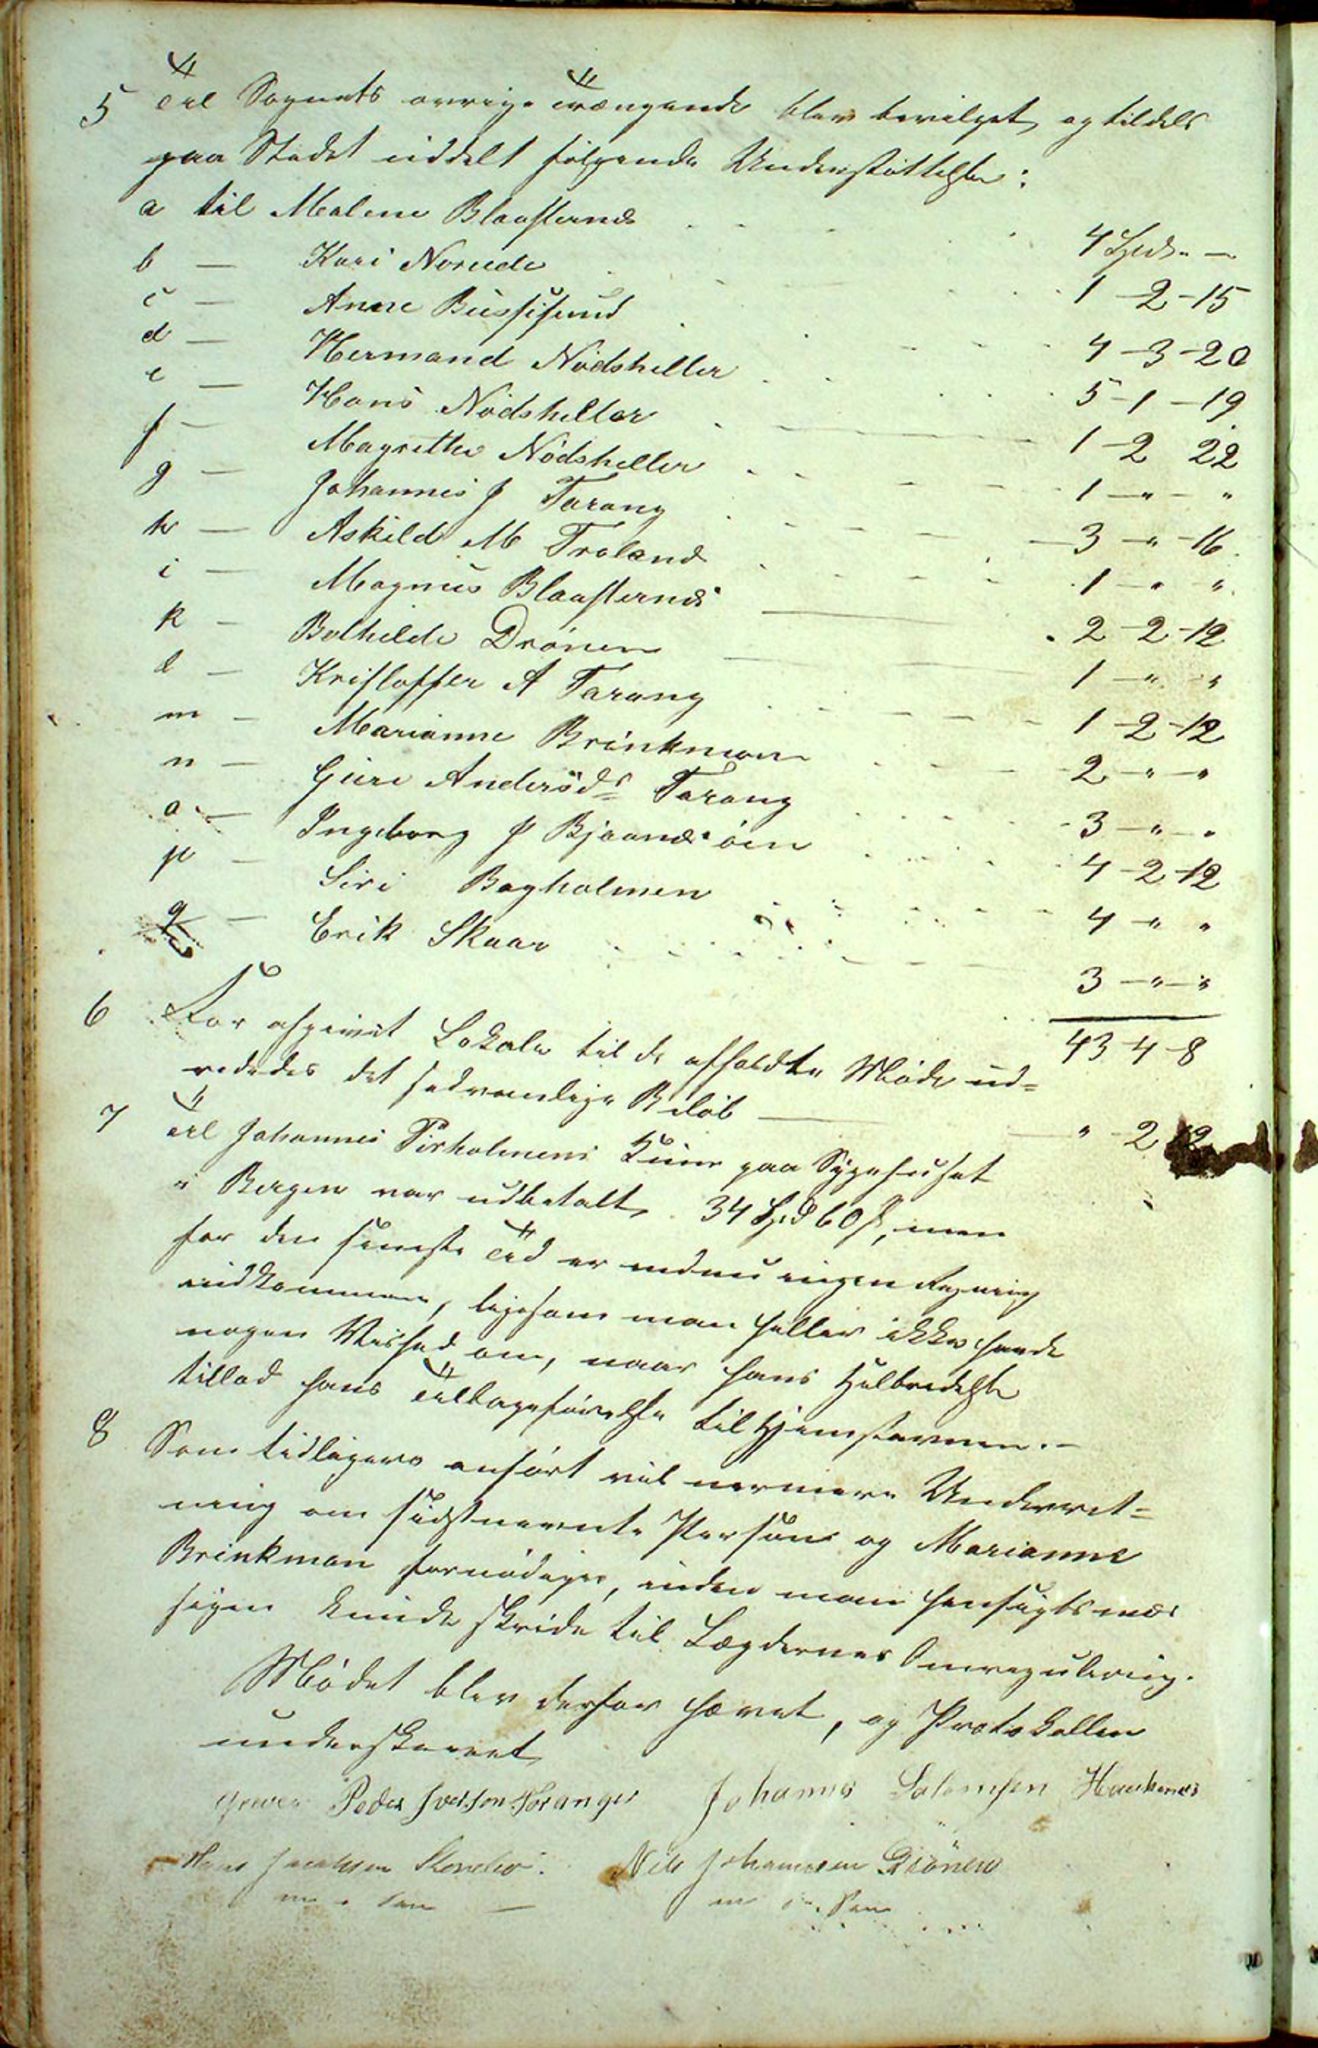 5 Til Sognets øvrige Trængende blev bevilget og tildels
paa Stedet uddelt følgende Understøttelse:
a til Malene Blaasternæs 4 Spd. " —
b — Kari Norude 1 - 2 - 15
c — Anne Bussesund 4 - 3 - 20
d — Hermand Nødsheller 5 - 1 - 19
e — Hans Nødsheller 1 - 2 22
f — Magrethe Nødsheller 1 - " - "
g — Johannes J Tarang 3 - " - 16
h — Askild M Troland 1 - " "
i — Magnus Blaasternæs 2 - 2 - 12
k — Bothilde Drønen 1 - " - "
l — Kristoffer A Tarang 1 - 2 - 12
m — Marianne Brinkman 2 - " - "
n — Guri Andersd. Tarang 3 - " - "
o — Ingeborg J Bjaanesøen 4 - 2 - 12
p — Siri Bagholmen 4 - " "
q — Erik Skaar 3 - " - "
43 - 4 - 8
6 For afgivet Lokale til de afholdte Møde ud=
rededes det sedvanlige Beløb — " - 2 12
7 Til Johannes Pirholmens Kuur paa Sygehuset
i Bergen var udbetalt 34 Spd 60 s, men
for den seneste Tid er endnu ingen Regning
indkommen, ligesom man heller ikke havde
nogen Vished om, naar hans Helbredelse
tillod hans Tilbageførelse til Hjemstavnen. —
8 Som tidligere anført vil nærmere Underret=
ning om sidstnevnte Person og Marianne
Brinkman fornødiges, inden man hensigtsmæs
sigen kunde skride til Lægdernes Omregulering.
Mødet blev derfor hævet, og Protokollen
underskrevet
Peder Iversen Horanger Johannes Salomsen Haukenæs
Hans Jacobsen Nils Johannesen Drönen
m. p. Pen m. p. Pen